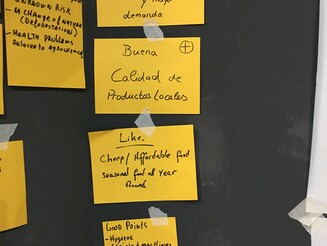 UNKNOWN RISK
- M CHANGE of NATURE
(Deforestation)
- HEALTH PROBLEMS
Related to Agrochemicals
y mayo
demanda
Buena
Calidad de
Productos Locales
Like.
Cheap / Affordable food
seasonal food at Year
Round
GOOD POINTS
- Hygiene